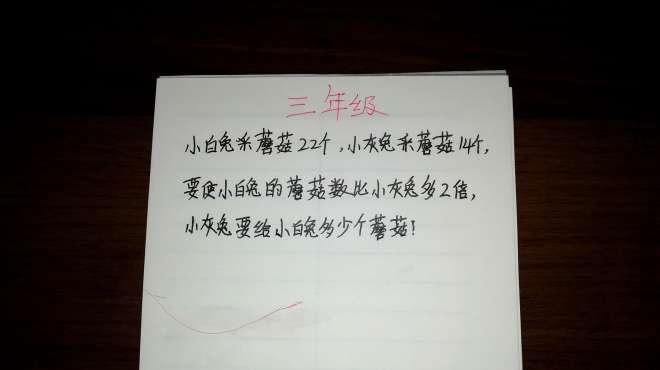 三年级
小白兔采蘑菇22个,小灰兔采蘑菇14个,
要使小白兔的蘑菇数比小灰兔多2倍,
小灰兔要给小白兔多少个蘑菇!